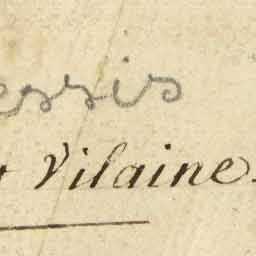 essis
Vilaine.